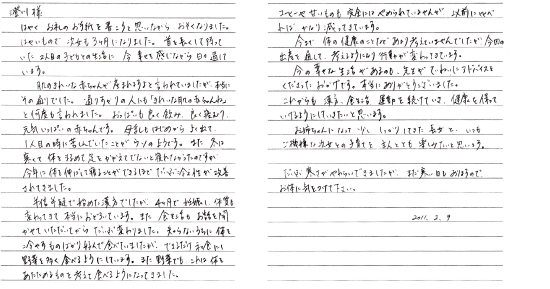 澄川 様
はやく お礼のお手紙を 書こうと思いながら おそくなりました。
はやいもので 次女も 3ヶ月になりました。首を長くして待って
いた 2人目の子どもとの生活に 今 幸せを感じながら 日々過ごして
います。
肌のきれいな赤ちゃんが 産まれますよと言われていましたが、本当に
その通りでした。通りすがりの人にも「きれいな肌の赤ちゃんね」
と何度も言われました。おっぱいも良く飲み、良く寝むり、
元気いっぱいの赤ちゃんです。母乳もはじめから よく出て、
1人目の時に苦しんでいたことが ウソのようです。また 冬は
寒くて 体を丸めて 足をかかえてでないと寝れなかったのですが
今年は 体を伸ばして寝ることができるほど だいぶ冷え性が改善
されてきました。
半信半疑で始めた漢方でしたが、4ヶ月で妊娠し 体質も
変わってきて 本当におどろいています。また 食生活も お話を聞
かせていただいてから だいぶ変わりました。知らないうちに 体を
冷やすものばかり好んで食べていましたが、できるだけ和食にし
野菜を多く食べるようにしています。また 野菜でも これは 体を
あたためるものと考えて食べるようになってきました。
コーヒーや甘いものも 完全には やめられていませんが、以前にくらべ
れば かなり減ってきています。
今まで 体の健康のことなど あまり考えていませんでしたが 今回の
出産を通して、考えるようになり 行動が変わってきています。
今の幸せな生活があるのも、先生が ていねいにアドバイスを
くださった おかげです。本当にありがとうございました。
これからも 漢方、食生活、運動を続けていき、健康を保って
いけるようにしていきたいと思います。
お姉ちゃんになって 少し しっかりしてきた 長女と、いつも
ご機嫌な次女との子育てを 主人ともども 楽しみたいと思います。
だいぶ 寒さが やわらいできましたが、まだ寒い日もありますので
お体に気をつけて下さい。
2011. 2. 9